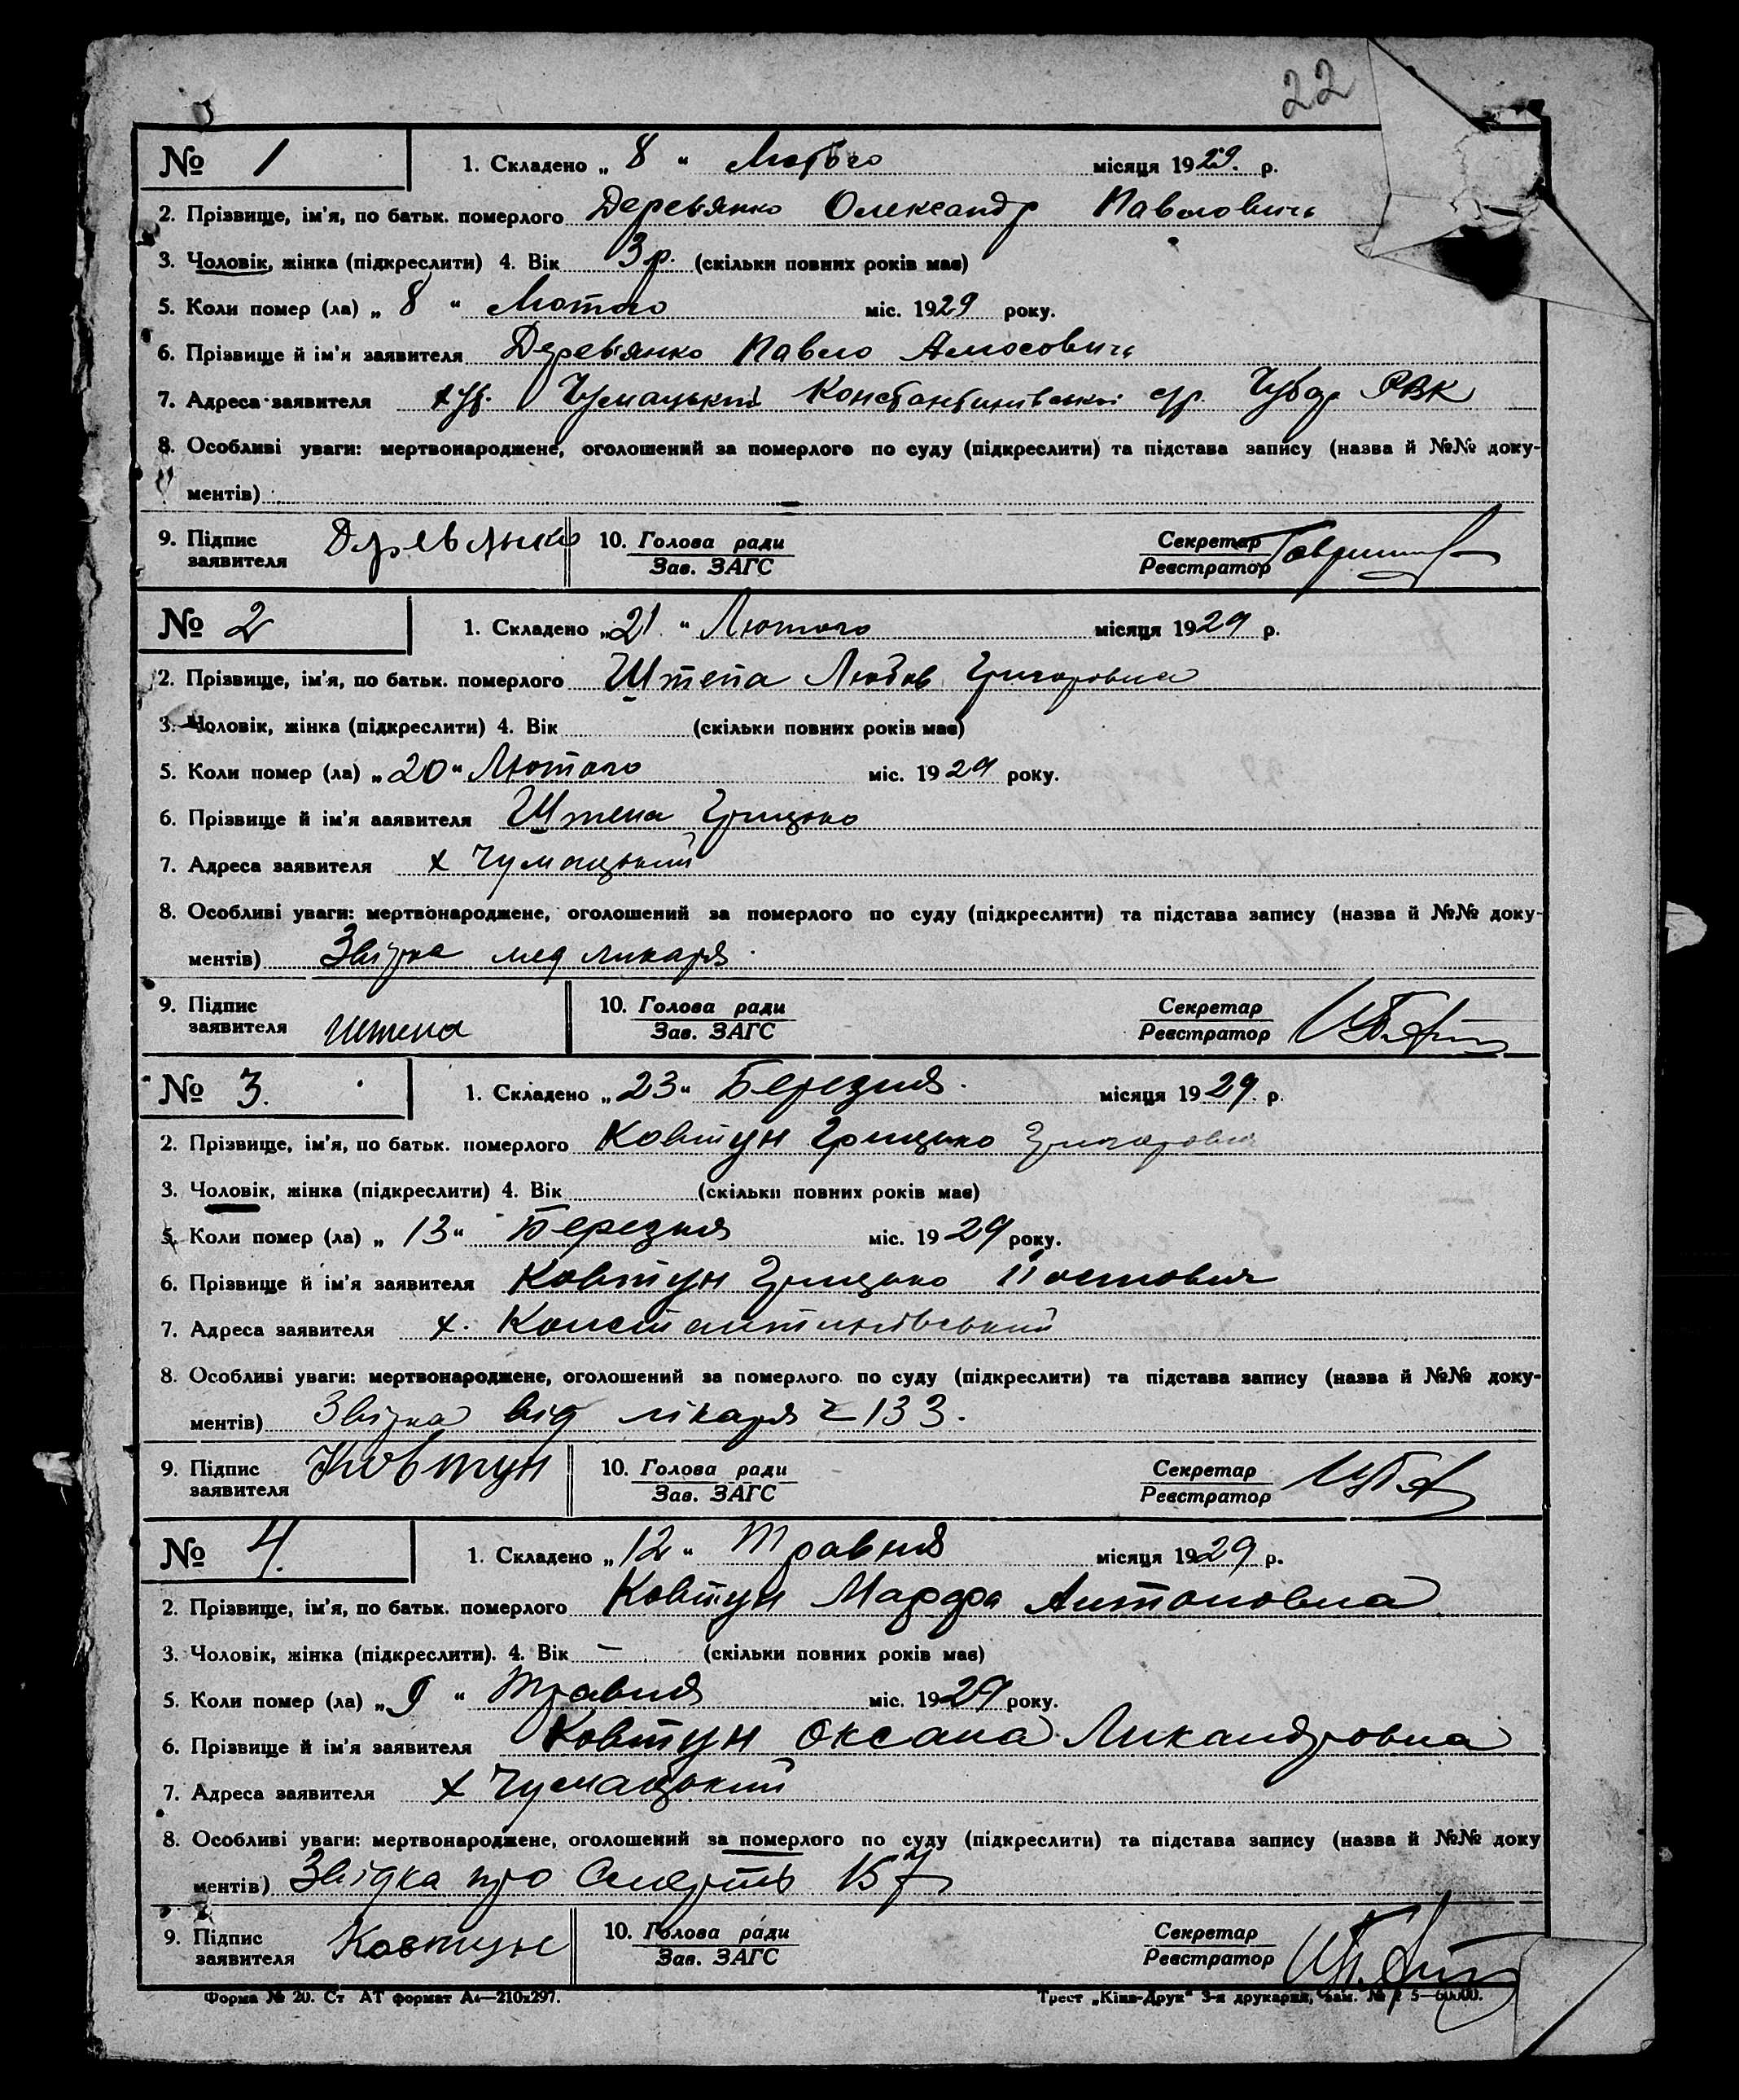 22
№ 1 1. Складено „ 8 “ Лютого місяця 1929. р.
2. Прізвище, ім'я, по батьк. померлого Дерев'янко Олександр Павлович
3. Чоловік, жінка (підкреслити) 4. Вік 3 р. (скільки повних років має)
5. Коли помер (ла) „ 8 “ Лютого міс. 1929 року.
6. Прізвище й ім'я заявителя Дерев'янко Павло Амосович
7. Адреса заявителя Чумацький Константинівської с/р. Чубар РВК
8. Особливі уваги: мертвонароджене, оголошений за померлого по суду (підкреслити) та підстава запису (назва й №№ доку-
ментів)
9. Підпис заявителя Деревянко 10. Голова ради Секретар
Зав. ЗАГС Реєстратор
№ 2 1. Складено „21 “ Лютого місяця 1929 р.
2. Прізвище, ім'я, по батьк. померлого Штепа Любов Григоровна
3. Чоловік, жінка (підкреслити) 4. Вік (скільки повних років має)
5. Коли помер (ла) „20“ Лютого міс. 1929 року.
6. Прізвище й ім'я заявителя Штепа Грицько
7. Адреса заявителя х Чумацький
8. Особливі уваги: мертвонароджене, оголошений за померлого по суду (підкреслити) та підстава запису (назва й №№ доку-
ментів) Звідка мед ликаря
9. Підпис заявителя Штепа 10. Голова ради Секретар
Зав. ЗАГС Реєстратор
№ 3. 1. Складено „23“ Березня місяця 1929. р.
2. Прізвище, ім'я, по батьк. померлого Ковтун Грицько
3. Чоловік, жінка (підкреслити) 4. Вік (скільки повних років має)
5. Коли помер (ла) „ 13“ Березня міс. 1929 року.
6. Прізвище й ім'я заявителя Ковтун Грицько
7. Адреса заявителя х. Константинівський
8. Особливі уваги: мертвонароджене, оголошений за померлого по суду (підкреслити) та підстава запису (назва й №№ доку-
ментів) Звідка від лікаря 133.
9. Підпис заявителя Ковтун 10. Голова ради Секретар
Зав. ЗАГС Реєстратор
№ 4. 1. Складено „12“ Травня місяця 1929 р.
2. Прізвище, ім'я, по батьк. померлого Ковтун Марфа Антоновна
3. Чоловік, жінка (підкреслити). 4. Вік — (скільки повних років має)
5. Коли помер (ла) „9 “ Травня міс. 1929 року.
6. Прізвище й ім'я заявителя Ковтун Оксана Ликандровна
7. Адреса заявителя х Чумацький
8. Особливі уваги: мертвонароджене, оголошений за померлого по суду (підкреслити) та підстава запису (назва й №№ доку
ментів) Звідка про Смерть 157
9. Підпис заявителя Ковтун 10. Голова ради Секретар
Зав. ЗАГС Реєстратор
Форма № 20. Ст АТ формат А₄—210x297. Трест „Київ-Друк“ 3-я друкарня, зам. № 5—60000.